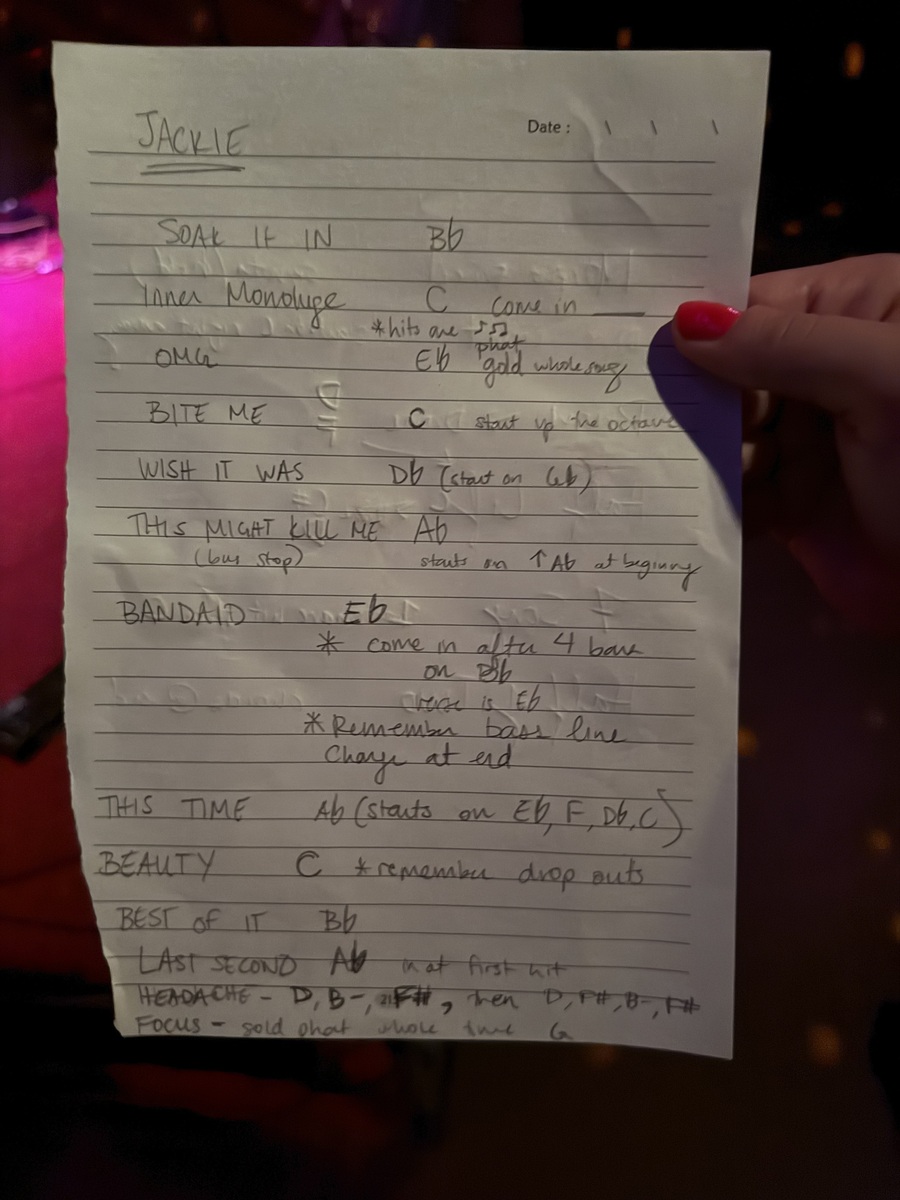 JACKIE
Date :
SOAK IT IN Bb
Inner Monoluge C come in ____
*hits are ♪♫
phat
OMG Eb gold whole song
BITE ME C start up the octave
WISH IT WAS Db (start on Gb)
THIS MIGHT KILL ME Ab
(bus stop) starts on ↑Ab at beginning
BANDAID Eb
* come in after 4 bars
on Bb
verse is Eb
*Remember bass line
Change at end
THIS TIME Ab (starts on Eb, F, Db, C)
BEAUTY C *remember drop outs
BEST OF IT Bb
LAST SECOND Ab in at first hit
HEADACHE - D, B-, F#, then D, F#, B-, F#
FOCUS - gold phat whole time G